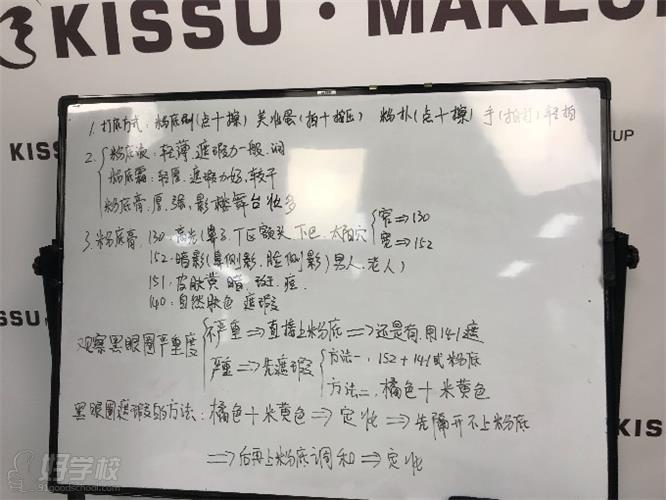 KISSU · MAKEUP
KISSU
KISSU
UP
KISS
1. 打底方式：粉底刷(点十擦) 美妆蛋(拍十按压) 粉扑(点十擦) 手(拍打)轻拍
2. 粉底液：轻薄.遮瑕力一般.润
粉底霜：轻厚.遮瑕力好.较干
粉底膏.厚.强.影楼舞台妆多
3. 粉底膏.130.高光(鼻子.T区额头.下巴.太阳穴 窄⇒130
宽⇒152
152.暗影(鼻侧影.脸侧影)男人.老人)
151.皮肤黄 暗.斑.痘.
140.自然肤色 遮瑕
观察黑眼圈严重度 不严重⇒直接上粉底⇒还是有.用141遮
严重⇒先遮瑕 方法一.152+141或粉底
方法二.橘色十米黄色
黑眼圈遮瑕的方法：橘色十米黄色⇒定妆⇒先隔开不上粉底
⇒后再上粉底调和⇒定妆
好学校
www.91goodschool.com